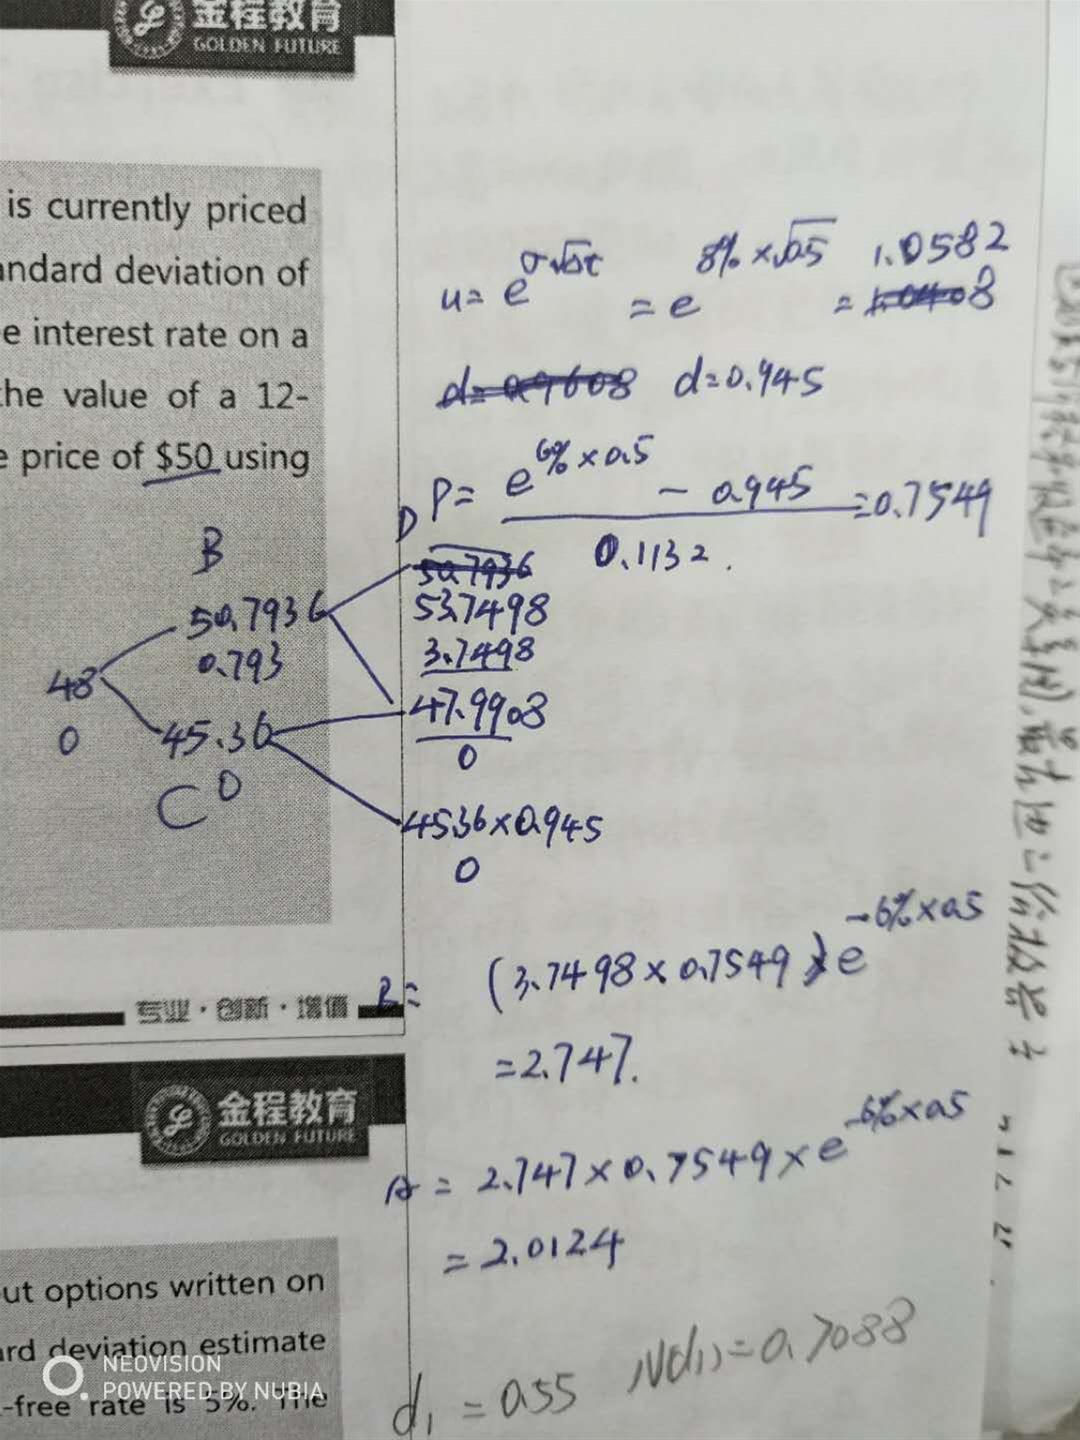 金程教育
GOLDEN FUTURE
is currently priced
andard deviation of
e interest rate on a
the value of a 12-
e price of $50 using
u = e^σ√Δt = e^8%×√0.5 = 1.0582
d=0.9608 d=0.945
P = e^6%×0.5 - 0.945 = 0.7549
0.1132.
D
B
50.7936
50.7936
53.7498
0.793
3.7498
48
47.9908
0
45.36
0
C
0
45.36×0.945
0
B= (3.7498×0.7549) e^-6%×0.5
=2.747.
专业·创新·增值
金程教育
GOLDEN FUTURE
A = 2.747×0.7549×e^-6%×0.5
= 2.0124
ut options written on
ard deviation estimate
-free rate is 5%. The
d₁ = 0.55 N(d₁)=0.7088
NEOVISION
POWERED BY NUBIA